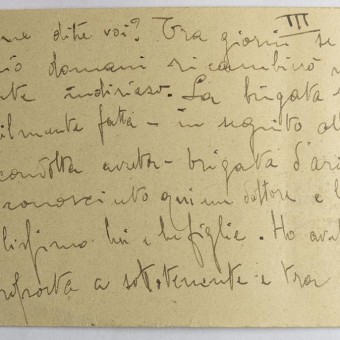 III
me dite voi? Tra giorni se
domani ricambierò
indirizzo. La brigata
ilmente fatta - in seguito al
condotta avuta - brigata d'ar
conosciuto qui un dottore e l
lui e le figlie. Ho avu
a sottotenente e tra